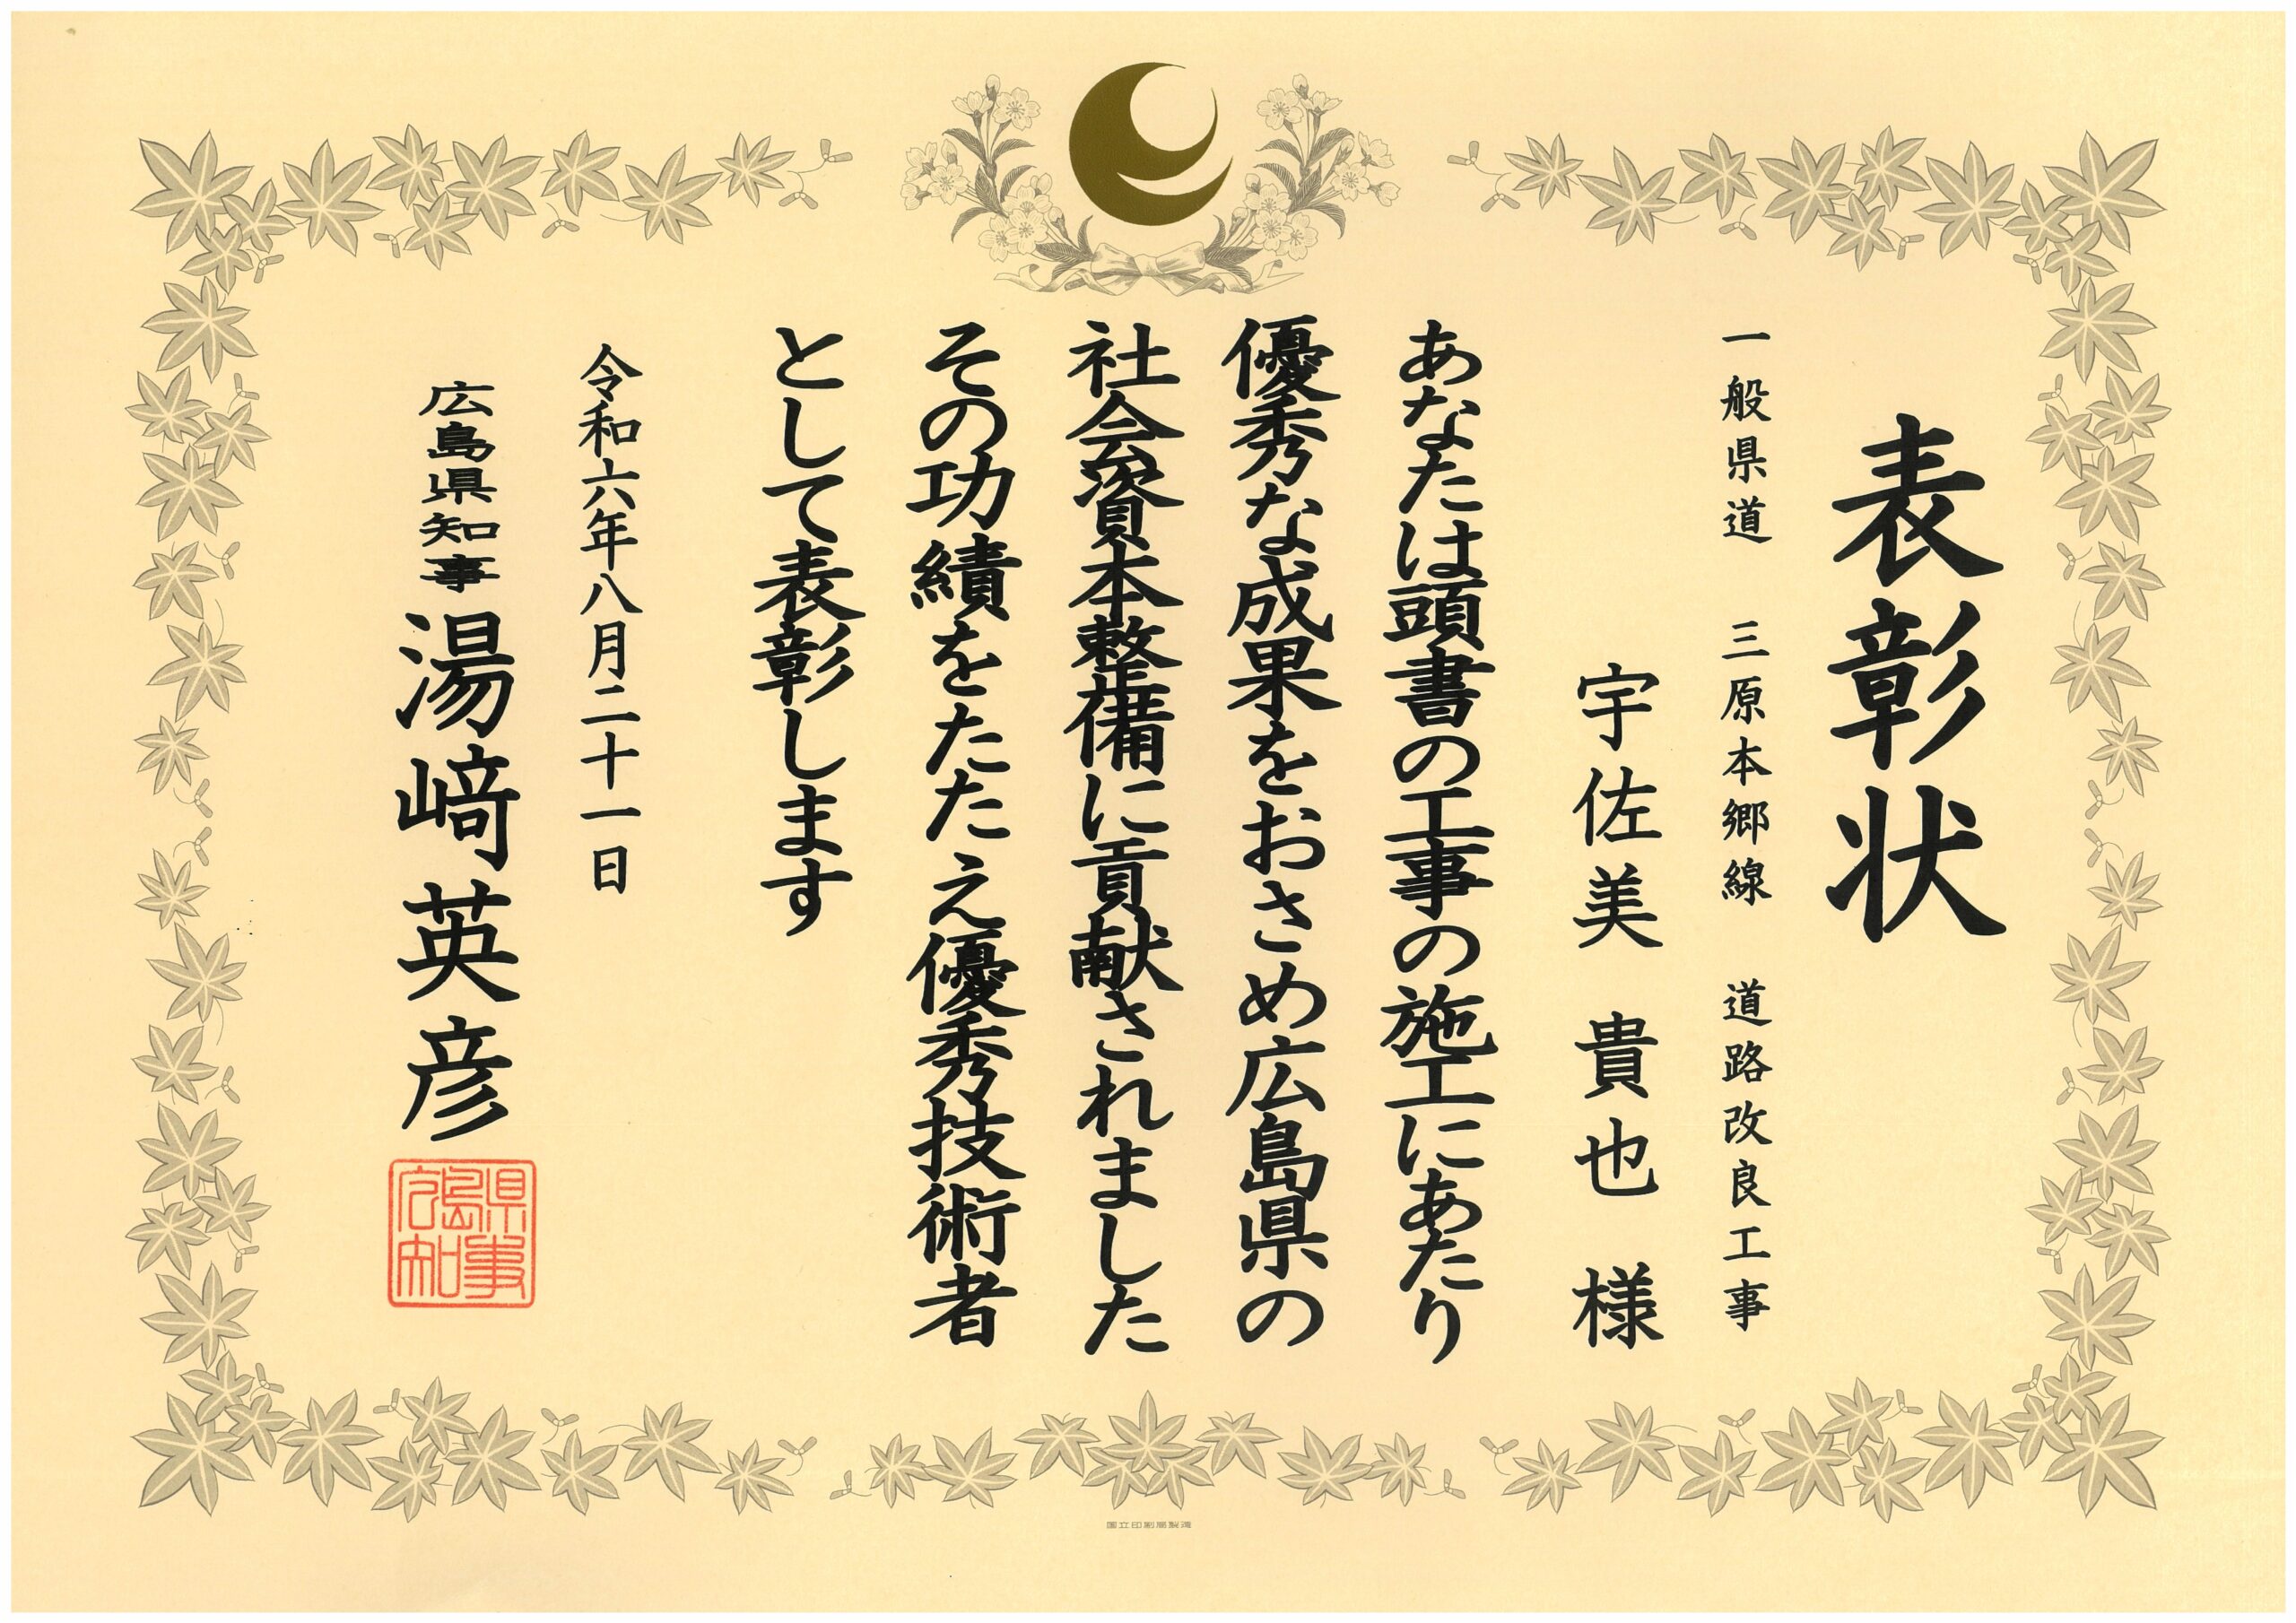 表彰状
一般県道　三原本郷線　道路改良工事
宇佐美　貴也　様
あなたは頭書の工事の施工にあたり
優秀な成果をおさめ広島県の
社会資本整備に貢献されました
その功績をたたえ優秀技術者
として表彰します
令和六年八月二十一日
広島県知事　湯﨑英彦
県事
島
広知
国立印刷局製造